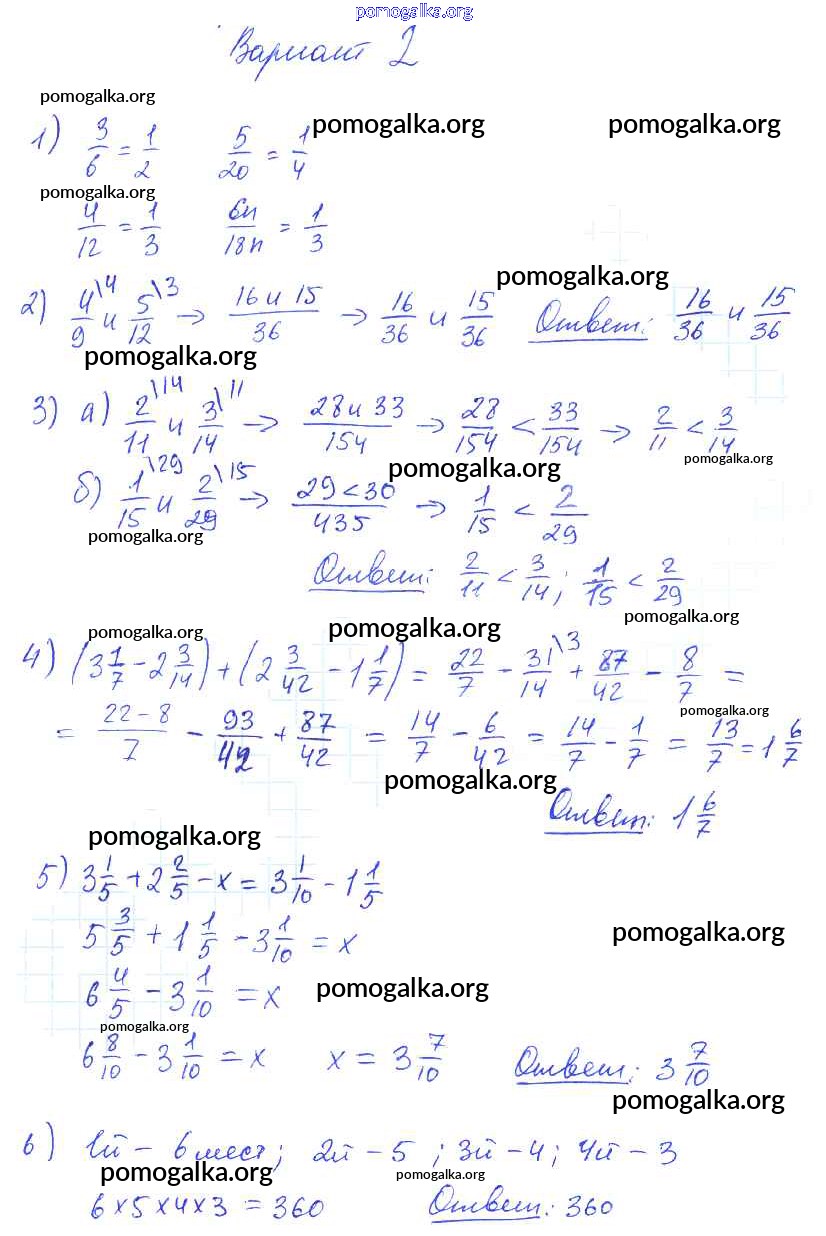 pomogalka.org
Вариант 2
pomogalka.org
1) 3/6 = 1/2 5/20 = 1/4
pomogalka.org pomogalka.org
pomogalka.org
4/12 = 1/3 6n/18n = 1/3
pomogalka.org
2) 4/9 \4 и 5/12 \3 → 16 и 15/36 → 16/36 и 15/36 Ответ: 16/36 и 15/36
pomogalka.org
3) а) 2/11 \14 и 3/14 \11 → 28 и 33/154 → 28/154 < 33/154 → 2/11 < 3/14
pomogalka.org pomogalka.org
б) 1/15 \29 и 2/29 \15 → 29 < 30/435 → 1/15 < 2/29
pomogalka.org
Ответ: 2/11 < 3/14; 1/15 < 2/29
pomogalka.org
pomogalka.org pomogalka.org
4) (3 1/7 - 2 3/14) + (2 3/42 - 1 1/7) = 22/7 - 31/14 \3 + 87/42 - 8/7 =
pomogalka.org
= 22 - 8/7 - 93/42 + 87/42 = 14/7 - 6/42 = 14/7 - 1/7 = 13/7 = 1 6/7
pomogalka.org
Ответ: 1 6/7
pomogalka.org
5) 3 1/5 + 2 2/5 - x = 3 1/10 - 1 1/5
5 3/5 + 1 1/5 - 3 1/10 = x
pomogalka.org
6 4/5 - 3 1/10 = x
pomogalka.org
pomogalka.org
6 8/10 - 3 1/10 = x x = 3 7/10 Ответ: 3 7/10
pomogalka.org
6) 1й - 6 мест; 2й - 5; 3й - 4; 4й - 3
pomogalka.org pomogalka.org
6 × 5 × 4 × 3 = 360 Ответ: 360